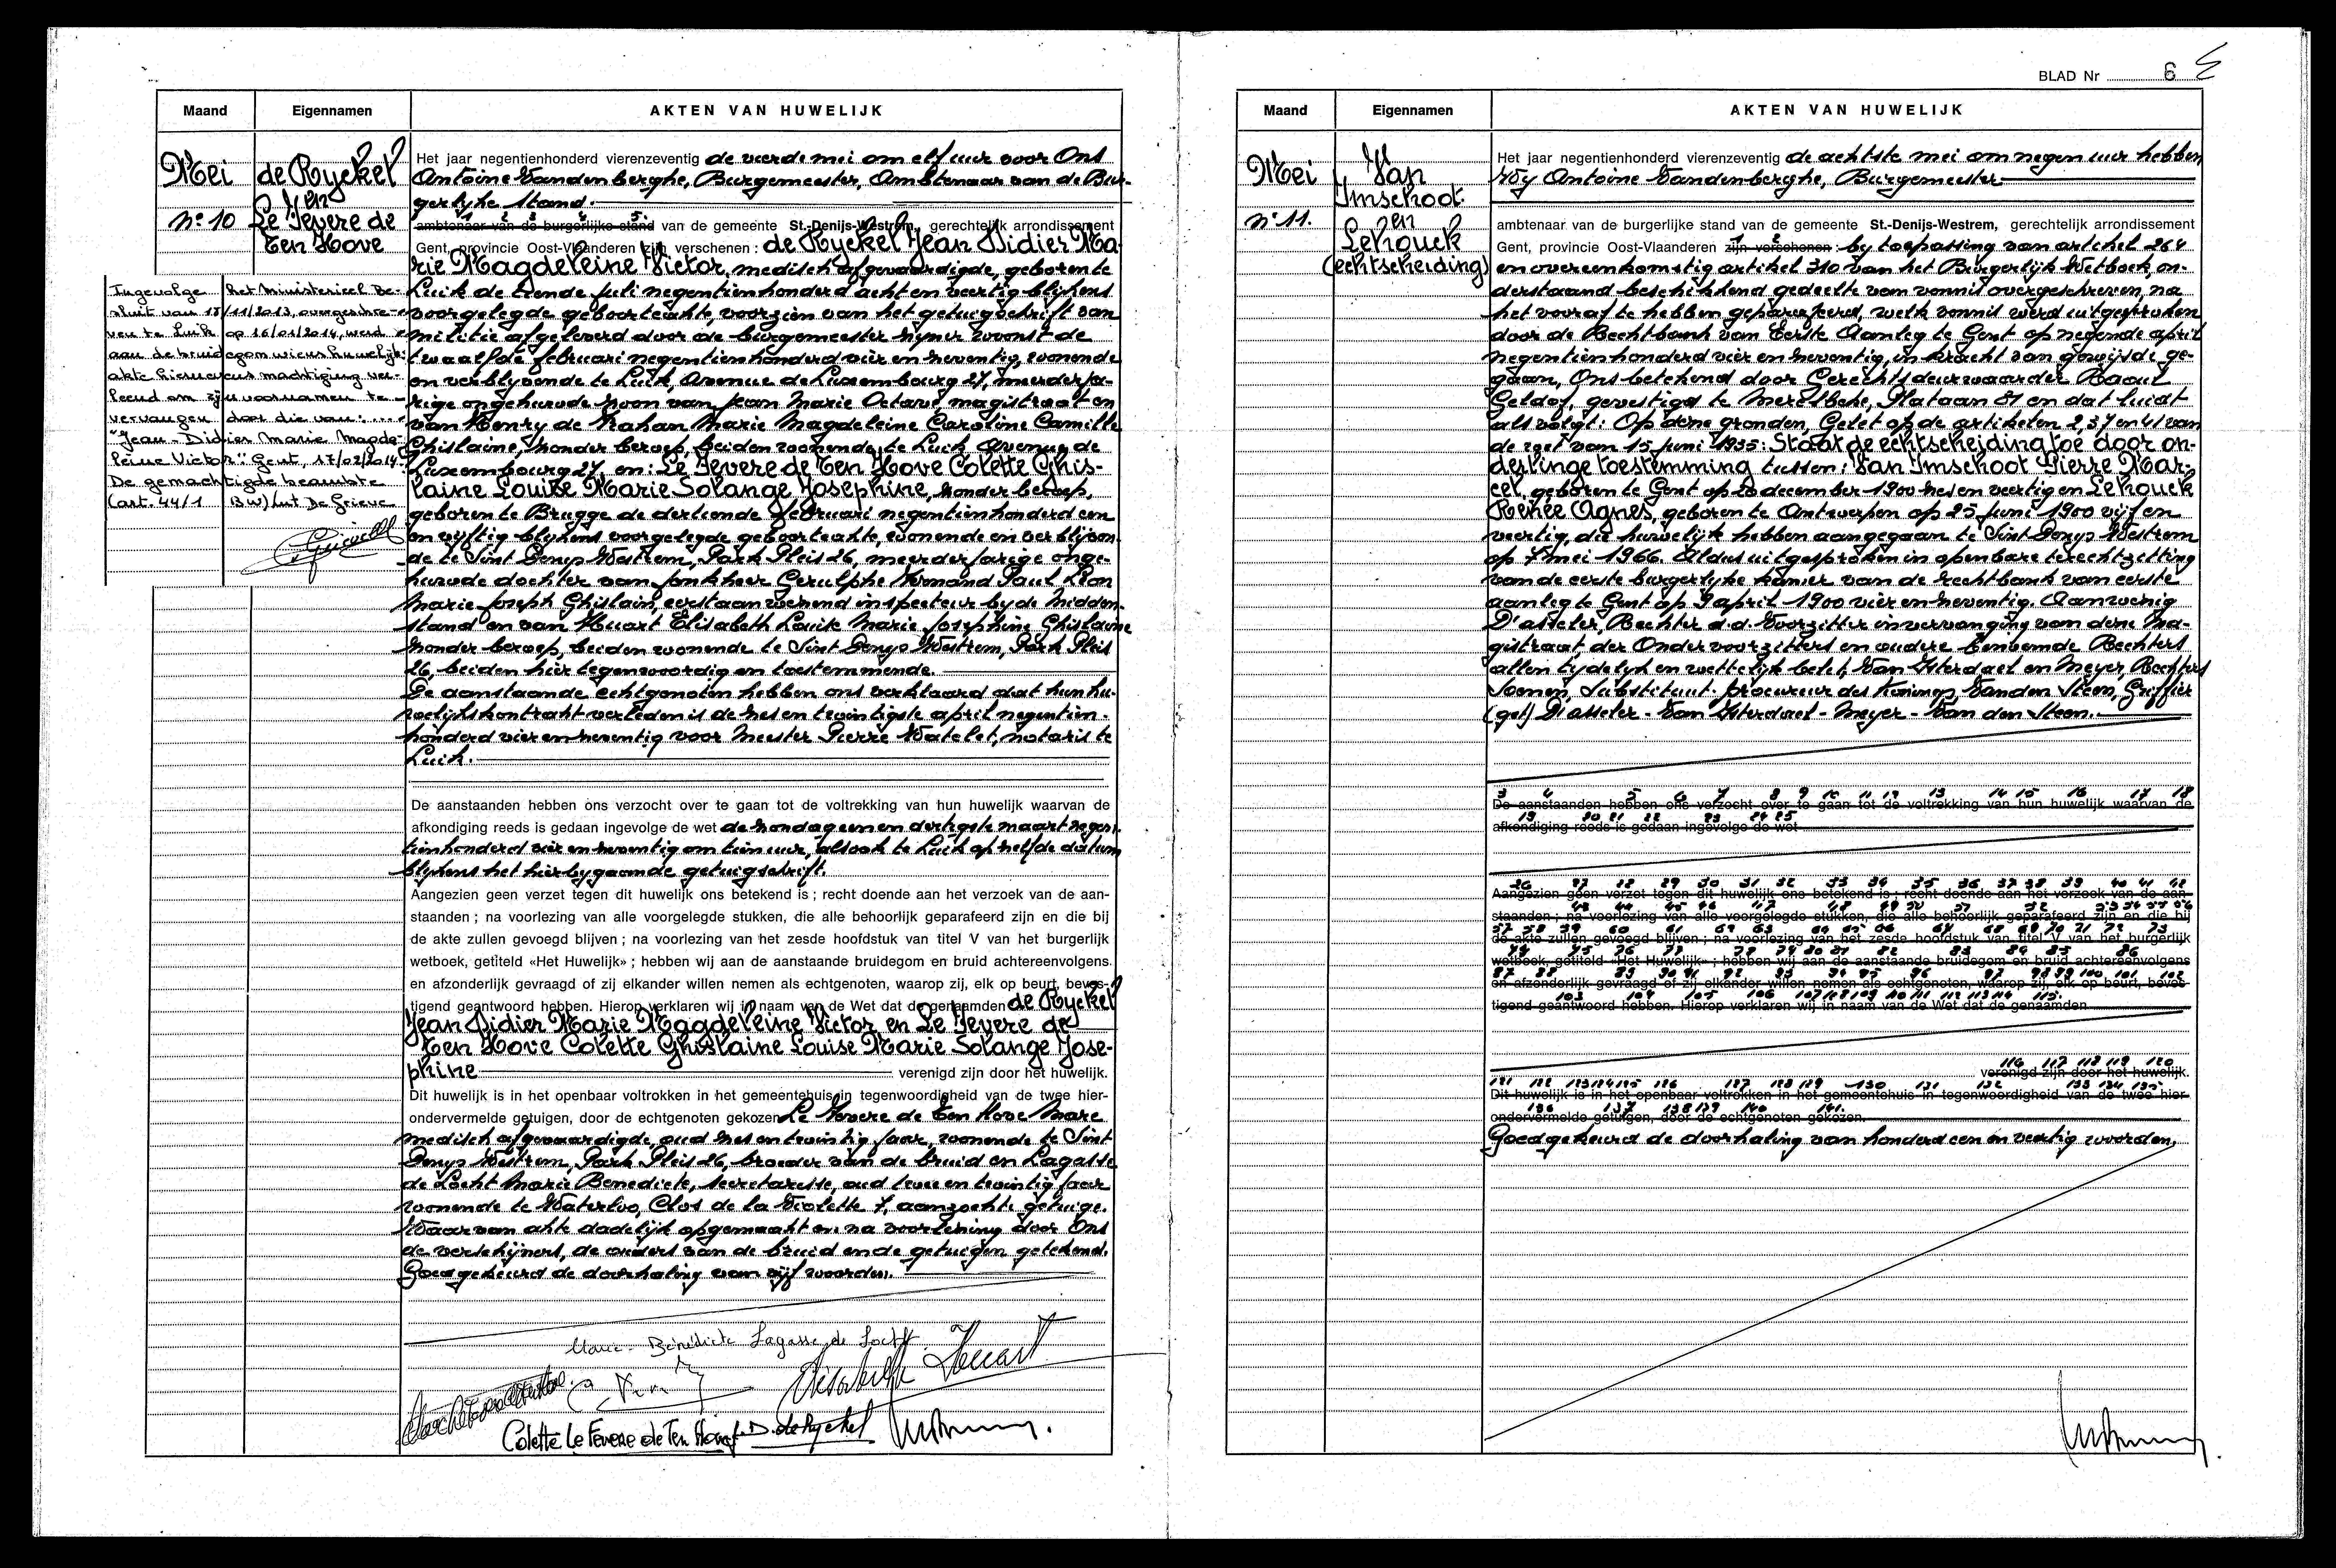 Maand
Eigennamen
AKTEN VAN HUWELIJK
Mei
nº 10
de Ryckel
en
Le Fevere de
Ten Hove
Ingevolge het Ministerieel Be-
sluit van 18/11/2013, overgeschre-
ven te Luik op 16/01/2014, werd
aan de bruidegom wiens huwelijk
akte hiernevens machtiging ver-
leend om zijn voornamen te
vervangen door die van: ....
"Jean-Didier Marie Magde-
leine Victor". Gent, 17/02/2014.
De gemachtigde beambte
(art. 44/1 BW) Lut De Grieve
Het jaar negentienhonderd vierenzeventig de vierde mei om elf uur voor Ons
Antoine Vandenberghe, Burgemeester, Ambtenaar van de Bur-
gerlyke stand.
1 2 3 4 5.
ambtenaar van de burgerlijke stand van de gemeente St.-Denijs-Westrem, gerechtelijk arrondissement
Gent, provincie Oost-Vlaanderen zijn verschenen : de Ryckel Jean Didier Ma-
rie Magdeleine Victor, medisch afgevaardigde, geboren te
Luik de tiende juli negentienhonderd acht en veertig blijkens
voorgelegde geboorteakte, voorzien van het getuigschrift van
militie afgeleverd door de burgemeester zyner woonst de
twaalfde februari negentienhonderd vier en zeventig, wonende
en verblyvende te Luik, Avenue de Luxembourg 27, meerderja-
rige ongehuwde zoon van Jean Marie Octave, magistraat en
van Henry de Frahan Marie Magdeleine Caroline Camille
Ghislaine, zonder beroep, beiden wonende te Luik Avenue de
Luxembourg 27, en: Le Fevere de Ten Hove Colette Ghis-
laine Louise Marie Solange Josephine, zonder beroep,
geboren te Brugge de dertiende februari negentienhonderd een
en vyftig blykens voorgelegde geboorteakte, wonende en verblyven-
de te Sint Denys Westrem, Park Pleis 26, meerderjarige onge-
huwde dochter van Jonkheer Gerulphe Armand Paul Leon
Marie Joseph Ghislain, eerstaanwezend inspecteur by de Midden-
stand en van Huart Elisabeth Louise Marie Josephine Ghislaine
zonder beroep, beiden wonende te Sint Denys Westrem, Park Pleis
26, beiden hier tegenwoordig en toestemmende.
De aanstaande echtgenoten hebben ons verklaard dat hun hu-
welijkskontrakt verleden is de zes en twintigste april negentien-
honderd vier en zeventig voor Meester Pierre Watelet, notaris te
Luik.
De aanstaanden hebben ons verzocht over te gaan tot de voltrekking van hun huwelijk waarvan de
afkondiging reeds is gedaan ingevolge de wet de zondag een en dertigste maart negen-
tienhonderd vier en zeventig om tien uur, alsook te Luik op zelfde datum
blykens het hierbygaande getuigschrift.
Aangezien geen verzet tegen dit huwelijk ons betekend is ; recht doende aan het verzoek van de aan-
staanden ; na voorlezing van alle voorgelegde stukken, die alle behoorlijk geparafeerd zijn en die bij
de akte zullen gevoegd blijven ; na voorlezing van het zesde hoofdstuk van titel V van het burgerlijk
wetboek, getiteld «Het Huwelijk» ; hebben wij aan de aanstaande bruidegom en bruid achtereenvolgens
en afzonderlijk gevraagd of zij elkander willen nemen als echtgenoten, waarop zij, elk op beurt, beves-
tigend geantwoord hebben. Hierop verklaren wij in naam van de Wet dat de genaamden de Ryckel
Jean Didier Marie Magdeleine Victor en Le Fevere de
Ten Hove Colette Ghislaine Louise Marie Solange Jose-
phine verenigd zijn door het huwelijk.
Dit huwelijk is in het openbaar voltrokken in het gemeentehuis in tegenwoordigheid van de twee hier-
ondervermelde getuigen, door de echtgenoten gekozen Le Fevere de Ten Hove Marc
medisch afgevaardigde, oud zes en twintig jaar, wonende te Sint
Denys Westrem, Park Pleis 26, broeder van de bruid en Lagasse
de Locht Marie Benedicte, secretaresse, oud twee en twintig jaar
wonende te Waterloo, Clos de la Violette 7, aanzochte getuige.
Waarvan akte dadelijk opgemaakt en na voorlezing door Ons
de verschijners, de ouders van de bruid en de getuigen getekend.
Goedgekeurd de doorhaling van vijf woorden.
Marie-Bénédicte Lagasse de Locht
Elisabeth Huart
Colette Le Fevere de Ten Hove J. D. de Ryckel
BLAD Nr 6
Maand
Eigennamen
AKTEN VAN HUWELIJK
Mei
nº 11.
Van
Imschoot
en
Lehouck
(echtscheiding)
Het jaar negentienhonderd vierenzeventig de achtste mei om negen uur hebben
Wy Antoine Vandenberghe, Burgemeester
ambtenaar van de burgerlijke stand van de gemeente St.-Denijs-Westrem, gerechtelijk arrondissement
1 2
Gent, provincie Oost-Vlaanderen zijn verschenen : by toepassing van artikel 264
en overeenkomstig artikel 310 van het Burgerlijk Wetboek, on-
derstaand beschikkend gedeelte van vonnis overgeschreven, na
het vooraf te hebben geparafeerd, welk vonnis werd uitgesproken
door de Rechtbank van Eerste Aanleg te Gent op negende april
negentienhonderd vier en zeventig, in kracht van gewijsde ge-
gaan, Ons betekend door Gerechtsdeurwaarder Raoul
Geldof, gevestigd te Merelbeke, Statiaan 81 en dat luidt
als volgt: Op deze gronden, Gelet op de artikelen 2, 37 en 41 van
de wet van 15 juni 1935: Staat de echtscheiding toe door on-
derlinge toestemming tussen: Van Imschoot Pierre Mar-
cel, geboren te Gent op 20 december 1900 zes en veertig en Lehouck
Renée Agnes, geboren te Antwerpen op 25 juni 1900 vijf en
veertig, die huwelijk hebben aangegaan te Sint Denys Westrem
op 7 mei 1966. Aldus uitgesproken in openbare terechtzitting
van de eerste burgerlyke kamer van de rechtbank van eerste
aanleg te Gent op 9 april 1900 vier en zeventig. Aanwezig
D'asseler, Rechter d.d. Voorzitter in vervanging van deze Ma-
gistraat, der Ondervoorzitters en oudere benoemde Rechters
allen tijdelyk en wettelijk belet, Van Isterdael en Meyer, Rechters
Soenen, Substituut-procureur des Konings, Vanden Steen, Griffier
(get) D'asseler - Van Isterdael - Meyer - Van den Steen.
3 4 5 6 7 8 9 10 11 12 13 14 15 16 17 18
De aanstaanden hebben ons verzocht over te gaan tot de voltrekking van hun huwelijk waarvan de
19 20 21 22 23 24 25
afkondiging reeds is gedaan ingevolge de wet
26 27 28 29 30 31 32 33 34 35 36 37 38 39 40 41 42
Aangezien geen verzet tegen dit huwelijk ons betekend is ; recht doende aan het verzoek van de aan-
staanden ; na voorlezing van alle voorgelegde stukken, die alle behoorlijk geparafeerd zijn en die bij
de akte zullen gevoegd blijven ; na voorlezing van het zesde hoofdstuk van titel V van het burgerlijk
wetboek, getiteld «Het Huwelijk» ; hebben wij aan de aanstaande bruidegom en bruid achtereenvolgens
87 88 89 90 91 92 93 94 95 96 97 98 99 100 101 102
en afzonderlijk gevraagd of zij elkander willen nemen als echtgenoten, waarop zij, elk op beurt, beves-
103 104 105 106 107 108 109 110 111 112 113 114 115.
tigend geantwoord hebben. Hierop verklaren wij in naam van de Wet dat de genaamden
116 117 118 119 120
verenigd zijn door het huwelijk.
121 122 123 124 125 126 127 128 129 130 131 132 133 134 135
Dit huwelijk is in het openbaar voltrokken in het gemeentehuis in tegenwoordigheid van de twee hier-
136 137 138 139 140 141.
ondervermelde getuigen, door de echtgenoten gekozen.
Goedgekeurd de doorhaling van honderd een en veertig woorden,